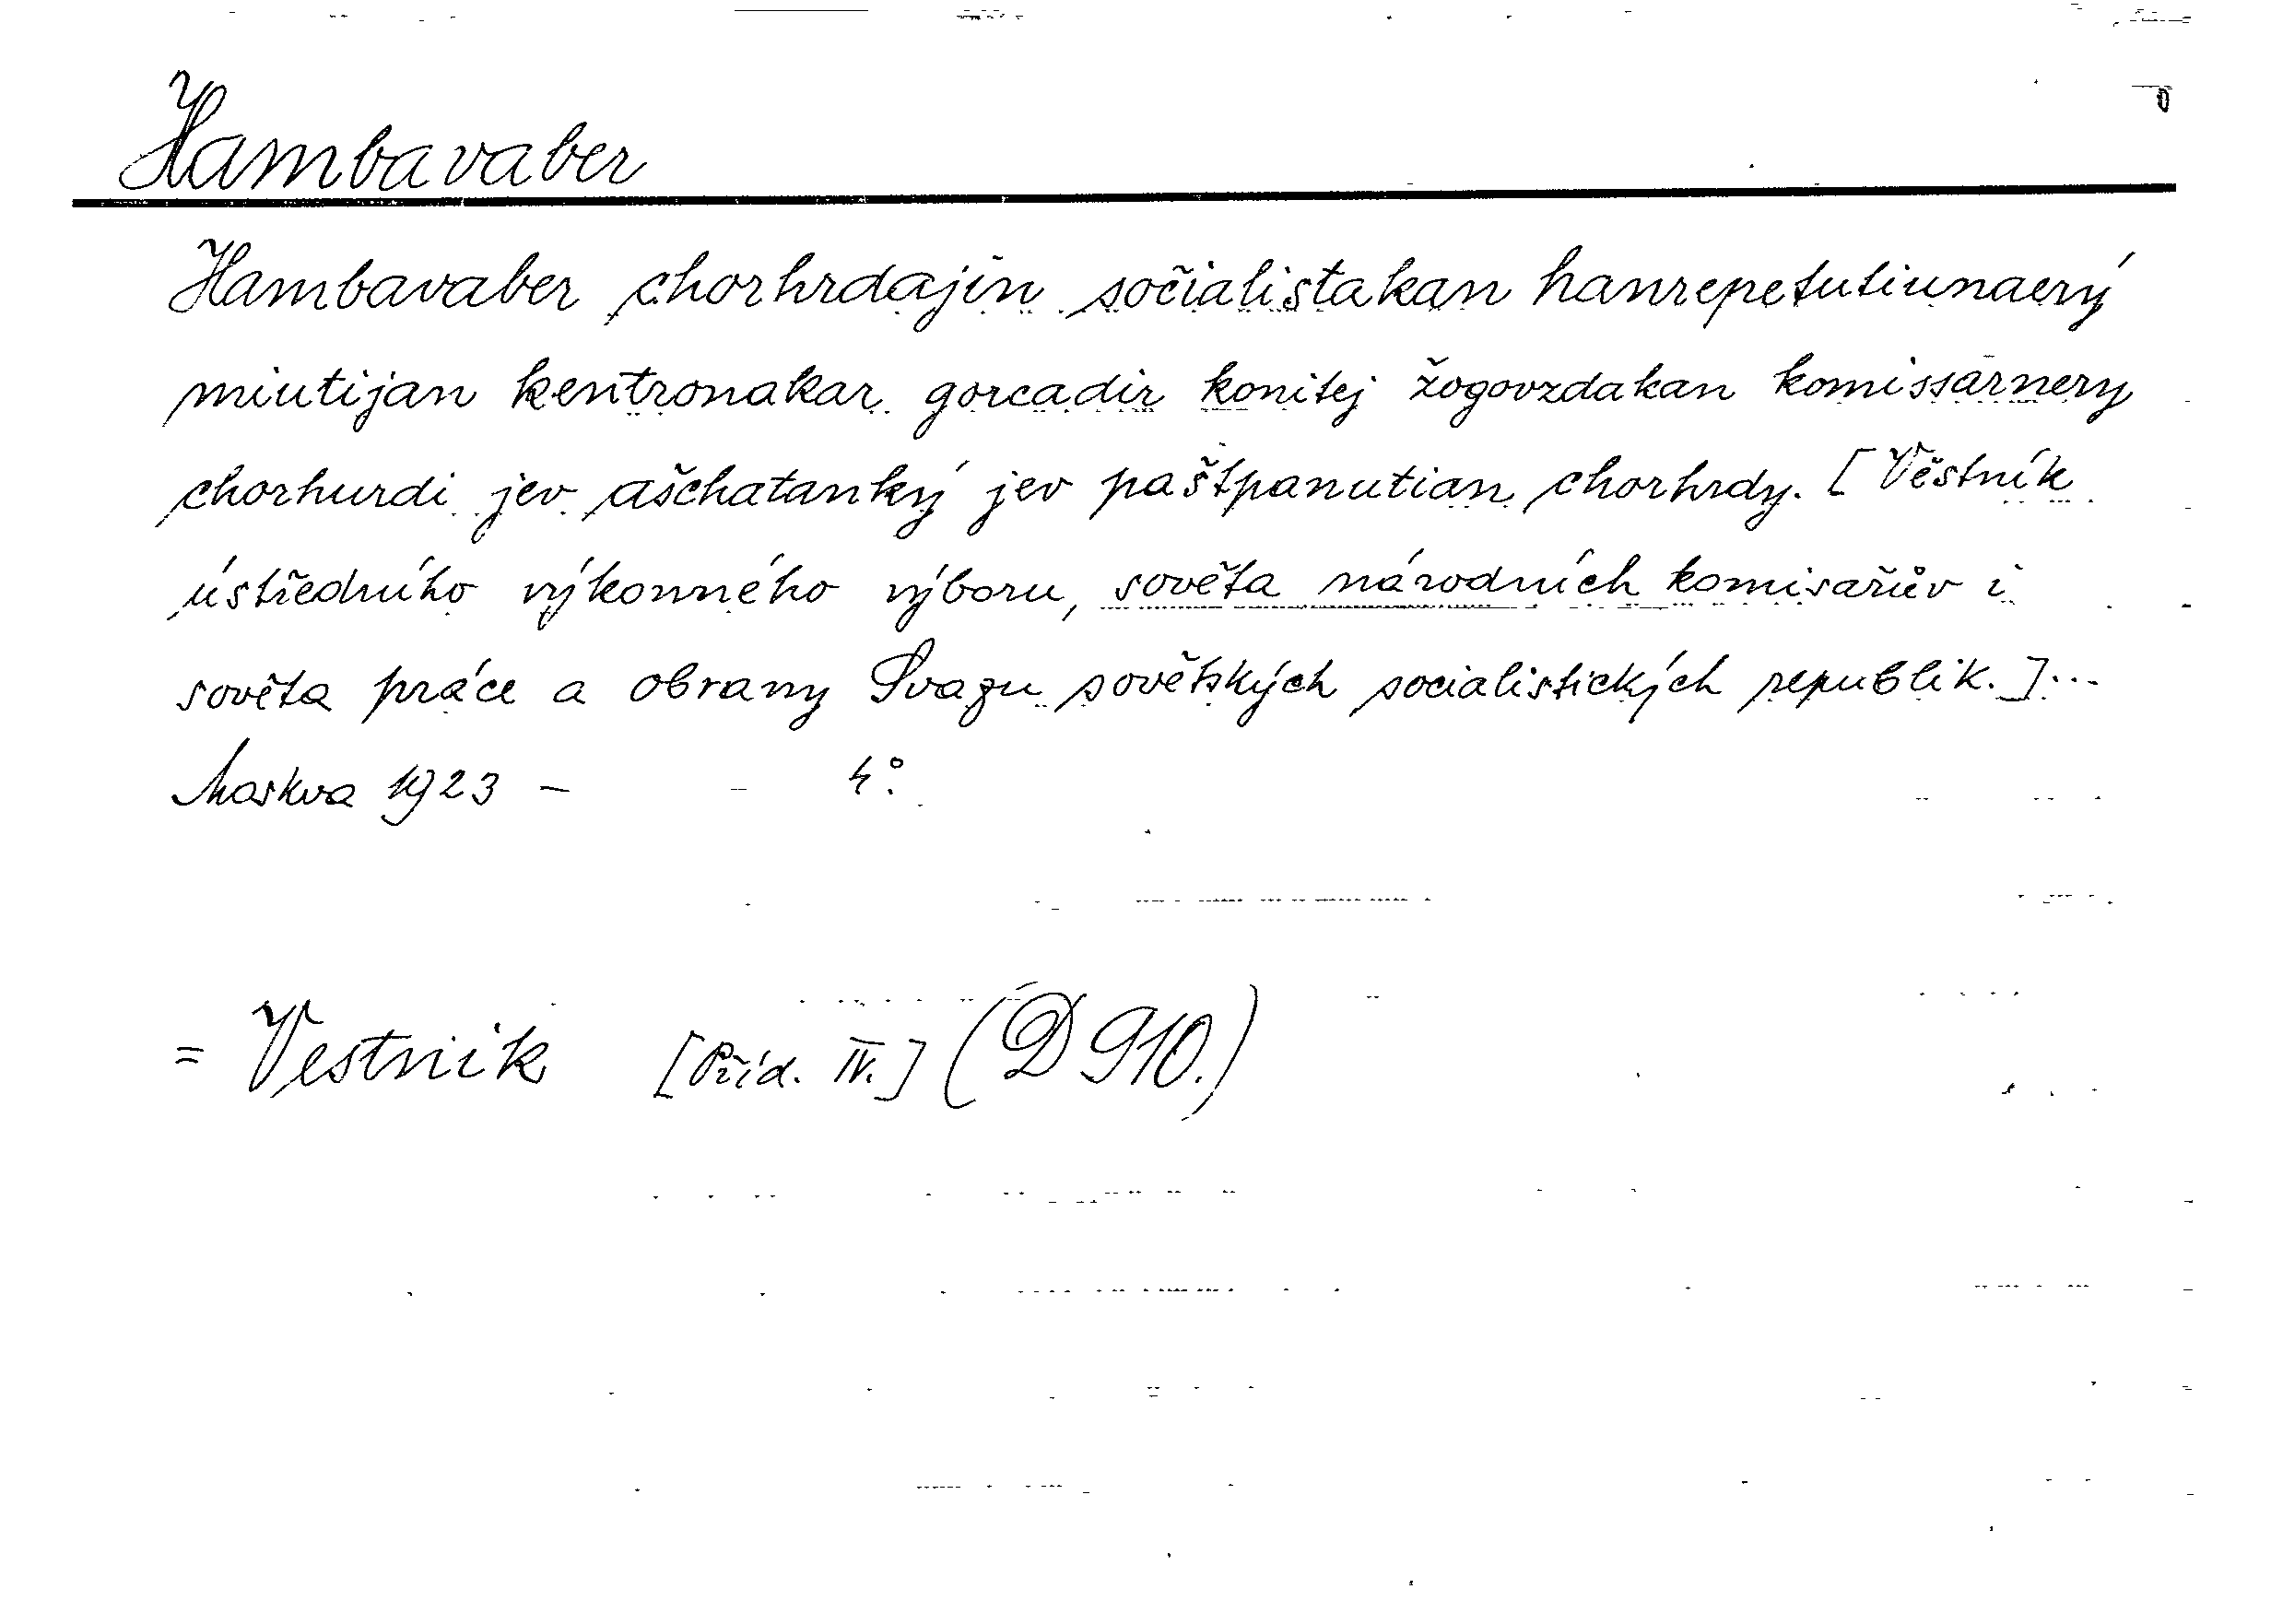 Hambavaber
Hambavaber chorhrdajin sočialistakan hanrepetutiunaerý
miutijan kentronakar gorcadir konitej žogovzdakan komissarnery
chorhurdi jev ašchatanký jev paštpanutian chorhrdy. [Věstník
ústředního výkonného výboru, sověta národních komisařův i
sověta práce a obrany Svazu sovětských socialistických republik.]...
Moskva 1923 - - 4°.
= Vestnik [Příd. IV.] (D 910.)